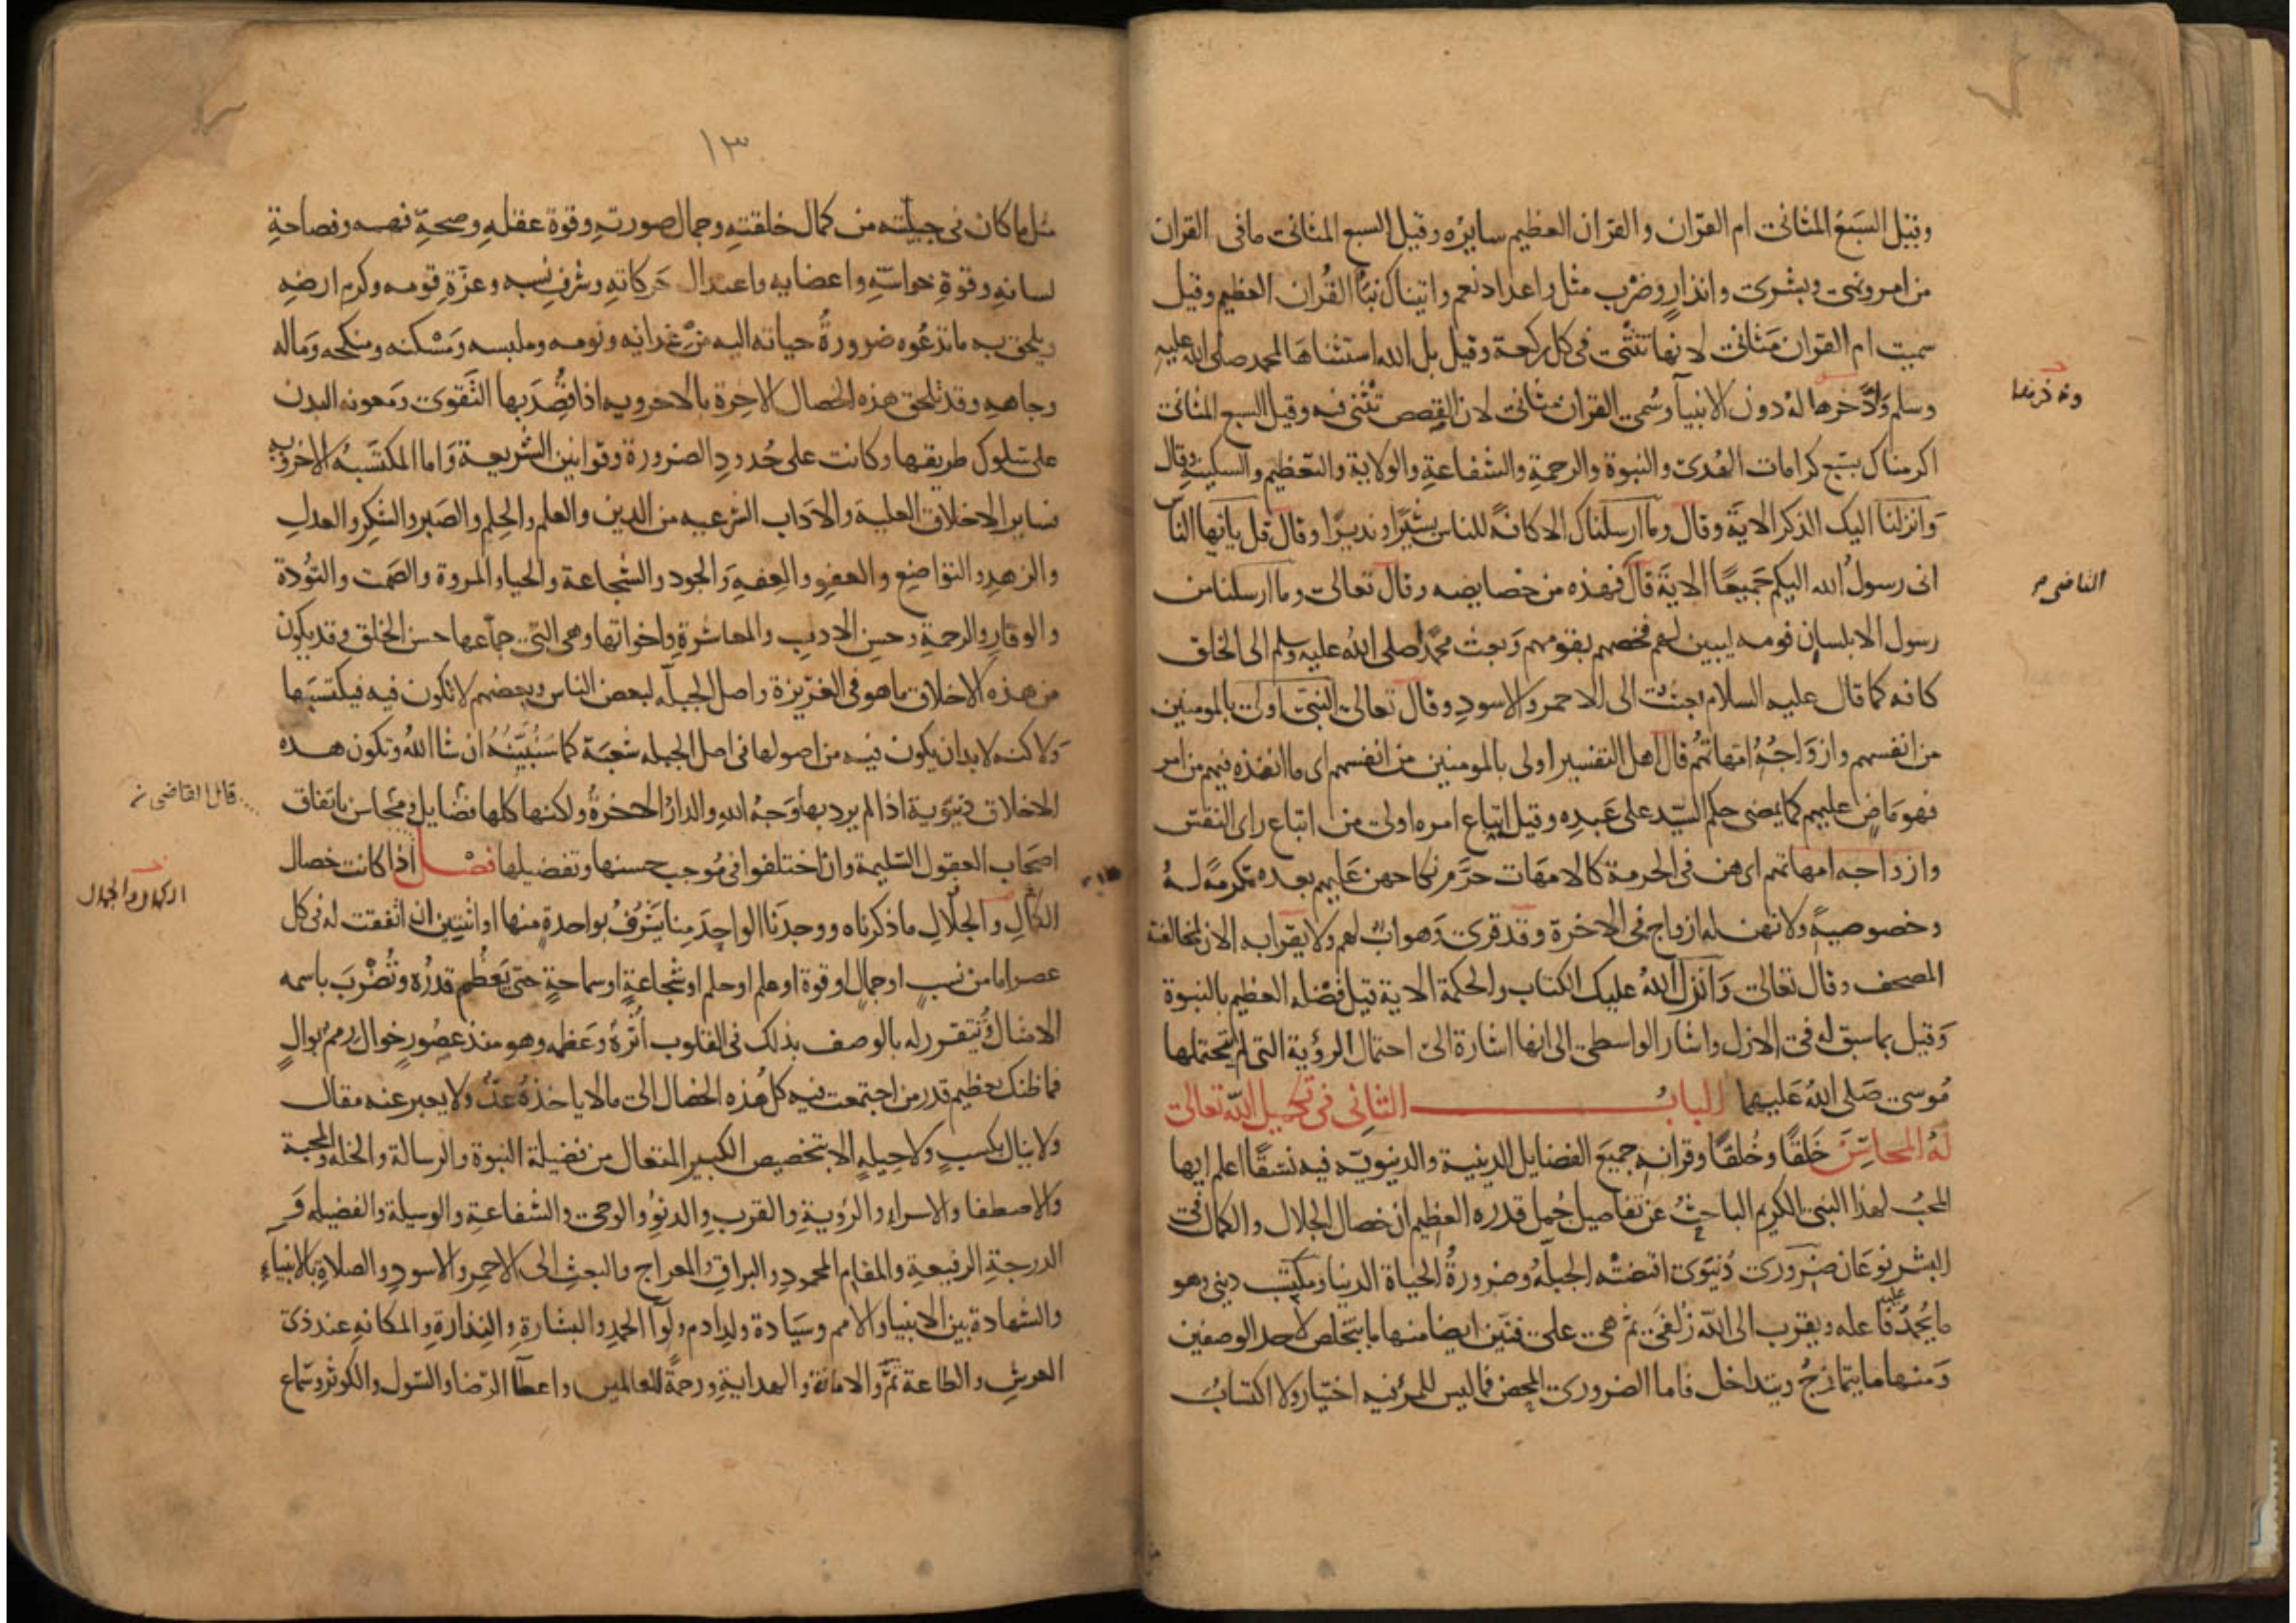 وقيل السَبعُ المثانى ام القرآن والقرآن العظيم سايره وقيل السبع المثانى ما فى القران
من امر ونهى وبشرى وانذارٍ وضرب مثل واعداد نعم واتيناك نبأ القُران العظيم وقيل
سميت ام القرآن مَثانى لانها تثنى فى كل ركعة وقيل بل الله استثناها لمحمد صلى الله عليه
وسلم وَادَّخرها له دون الانبيآ وسُمى القران مثانى لان القصص تُثنى فيه وقيل السبع المثانى
اكرمناك بسبع كرامات الهُدى والنبوة والرحمة والشفاعةِ والولاية والتعظيم والسكينة وقال
وَانزلنا اليک الذكر الاية وقال وما ارسلناك الا كافةً للناس بشيرًا ونذيرًا وقال قل يا ايها الناس
انى رسولُ الله اليكم جَميعًا الاية قال فهذه من خصايصه وقال تعالى وما ارسلنا من
رسول الا بلسان قومه ليبين لهم فخصهم بقومهم وَبعث محمدًا صلى اللهُ عليه وسلم الى الخلق
كافه كما قال عليه السلام بعثت الى الاحمر والاسودِ وقال تعالى النبى اولى بالمومنين
من انفسهم وازوَاجُهُ امهاتهُم قال اهل التفسير اولى بالمومنين من انفسهم اى ما انفذه فيهم من امر
فهو مَاضٍ عليهم كما يمضى حكم السَيّد على عَبدِه وقيل اتباع امره اولى من اتباع راى النفس
وازواجه امهاتهم اى هن فى الحرمة كالامهَات حَرَّم نكاحهن عَليهم بعده تكرمةً لهُ
وخصوصيةً ولانهن له ازواج فى الاخرة وقد قرى وَهو ابٌ لهم ولا يقرا به الان لمخالفته
المصحف وقال تعالى وَانزلَ اللهُ عليك الكتاب والحكمة الاية قيل فضله العظيم بالنبوة
وَقيل بما سبق له فى الازل واشار الواسطى الى انها اشارة الى احتمال الرؤية التى لم يحتملها
مُوسى صَلى اللهُ عَليهما البابُ الثانى فى تكميل الله تعالى
لهُ المحاسِنَ خَلقًا وخُلقًا وقرانه جميعَ الفضايل الدينية والدنيوية فيه نسقًا اعلم ايها
المحبُ لهذا النبى الكريم الباحِثُ عَن تفاصيل جُمل قدره العظيم ان خصال الجلال والكمال فى
البشر نوعَان ضَرورى دُنيَوى اقتضته الجبلَّهُ وضرورةُ الحياة الدنيا ومكتسَب دينى وهو
ما يُحمَدُ فاعله ويقرب الى الله زُلفَى ثم هى على فنَّين ايضا منها ما يتخلص لاحد الوصفين
وَمنها ما يتمازجُ ويتداخل فاما الضرورى المحض فما ليس للمرءِ فيه اختيار ولا اكتسابٌ
وذخرها
القاضى
١٣
مثل ما كان فى جبلّته من كمال خلقتهِ وجمال صورتهِ وقوة عقلهِ وصحةِ فهمه وفصاحةِ
لسانهِ وقوةِ حواسّهِ واعضايه واعتدال حَركاتهِ وشرفِ نسبه وعزّةِ قومه وكرم ارضِه
ويلحق به ما تدعُوه ضرورةُ حياته اليه من غذائه ونومه وملبسه ومَسْكنه ومنكحه وَماله
وجاهه وقد تلحق هذه الخصال الاخرة بالاخرويه اذا قُصِدَ بها التَقوى ومَعونه البدن
على سُلوك طريقها وكانت على حُدودِ الضرورة وقوانين الشريعة وَاما المكتسَبهُ الاخرويه
فساير الاخلاق العلية والاداب الشرعيه من الدين والعلم والحِلم والصَبر والشكر والعدلِ
والزهدِ والتواضِع والعفوِ والعِفهِ وَالجود والشجاعة والحياءِ والمروة والصَمت والتوُدة
والوقارِ والرحمةِ وحسن الادبِ والمعاشرةِ واخواتها وهى التى جماعها حسن الخلق وقد يكون
من هذه الاخلاق ما هو فى الغريزة واصل الجبلّه لبعض الناس وبعضهم لا تكون فيه فيكتسبَها
وَلاكنه لابد ان يكون فيه من اصولها فى اصل الجبله شُعبَة كما سَنُبَيّنهُ ان شا اللهُ وتكون هذه
الاخلاق دنيَوية اذا لم يرد بها وَجهُ اللهِ والدارُ الاخرةُ ولكنها كلها فضايل ومحاسن باتفاق
اصحَاب العقول السَليمة وان اختلفوا فى مُوجب حسنها وتفضيلها فصْل اذا كانت خصال
الكمال والجلالِ ما ذكرناه ووجدنا الواحِدَ منا يَشرُفُ بواحدةٍ منها او اثنتين ان اتفقت له فى كل
عصر اما من نسبٍ او جمالٍ او قوة او علم او حلم او شجاعةٍ او سماحةٍ حتى يَعظُم قدرُه وتُضْرَبَ باسمه
الامثال ويتقرر له بالوصف بذلک فى القلوب أثرة وَعَظمه وهو منذ عصُورٍ خوالٍ رممٌ بوالٍ
فما ظنك بعظيم قدر من اجتمعت فيه كلُ هذه الخصال الى ما لا ياخذهُ عدٌّ ولا يعبر عنه مقال
ولا ينال بكسبٍ ولا حيلهٍ الا بتخصيص الكبير المتعال من فضيلة النبوة والرسالة والخله والمحبة
والاصطفا والاسراءِ والرؤيةِ والقرب والدنوِ والوحى والشفاعةِ والوسيلة والفضيله وَ
الدرجةِ الرفيعةِ والمقام المحمودِ والبراق والمعراج والبعثِ الى الاحمر والاسودِ والصلاةِ بالانبيآءِ
والشهادة بين الانبيا والامم وسيَادة ولدِ ادم ولوآ الحمدِ والبشارةِ والنِذارةِ والمكانه عند ذى
العرشِ والطاعة ثَمَّ والامانة والهدايةِ ورحمة للعالمين واعطآ الرّضا والسّول والكوثر وسَماع
قال القاضى
الكمال والجلال